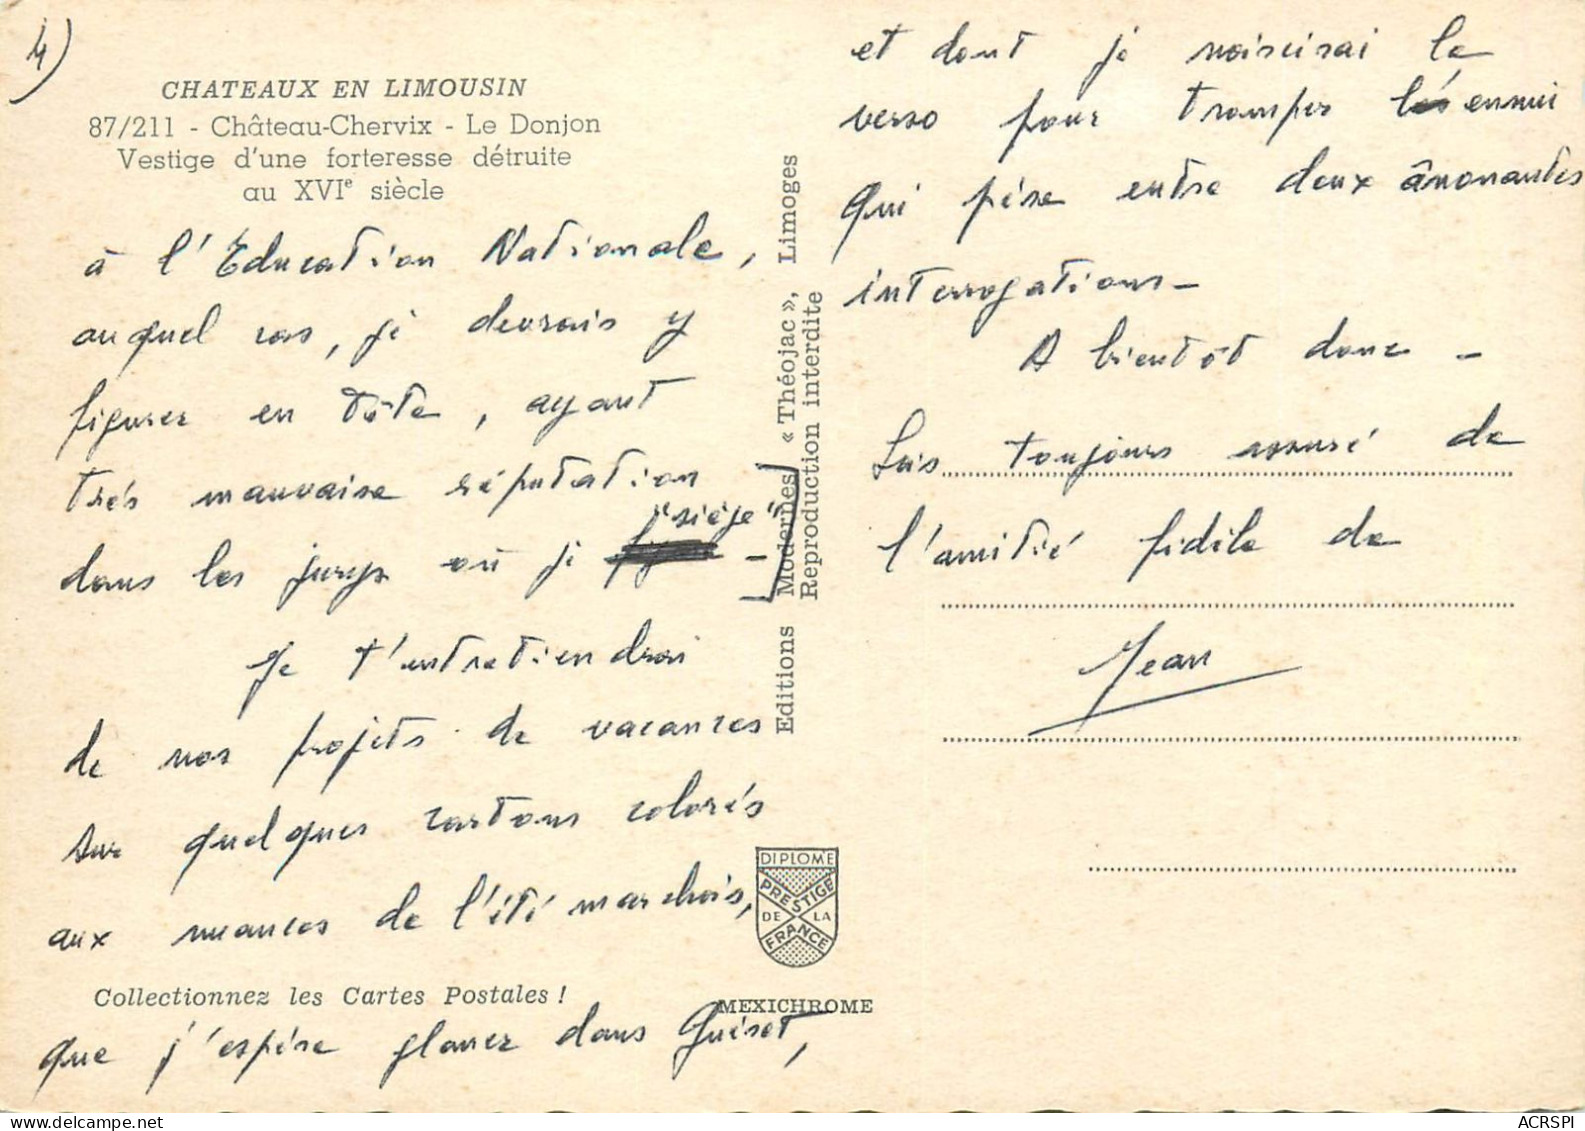 4)
CHATEAUX EN LIMOUSIN
87/211 - Château-Chervix - Le Donjon
Vestige d'une forteresse détruite
au XVIe siècle
à l'Education Nationale,
auquel cas, je devrais y
figurer en tête, ayant
très mauvaise réputation
dans les jurys où je "siège" -
Je t'entretiendrai
de nos projets de vacances
sur quelques cartons colorés
aux nuances de l'été marchois,
Collectionnez les Cartes Postales !
que j'espère glaner dans Guéret,
Editions Modernes « Théojac », Limoges
Reproduction interdite
DIPLOME
PRESTIGE
DE LA
FRANCE
MEXICHROME
et dont je noircirai le
verso pour tromper l'ennui
qui pèse entre deux ânonantes
interrogations -
A bientôt donc -
Sois toujours assuré de
l'amitié fidèle de
Jean
ACRSPI